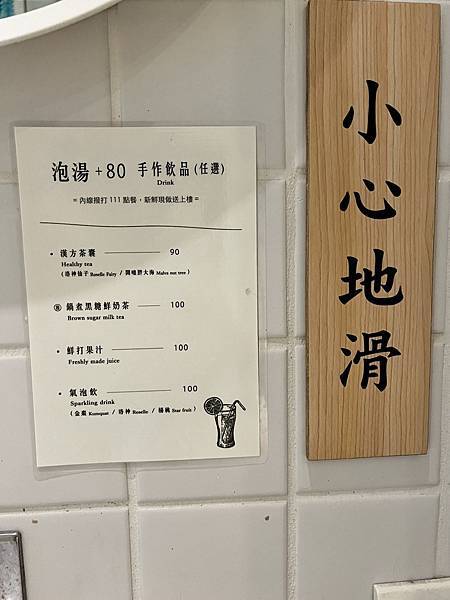 泡湯 +80 手作飲品 (任選)
Drink
= 內線撥打 111 點餐，新鮮現做送上樓 =
• 漢方茶囊 90
Healthy tea
( 洛神仙子 Roselle Fairy / 開嗓胖大海 Malva nut tree )
鍋煮黑糖鮮奶茶 100
Brown sugar milk tea
• 鮮打果汁 100
Freshly made juice
• 氣泡飲 100
Sparkling drink
( 金棗 Kumquat / 洛神 Roselle / 楊桃 Star fruit )
小心地滑